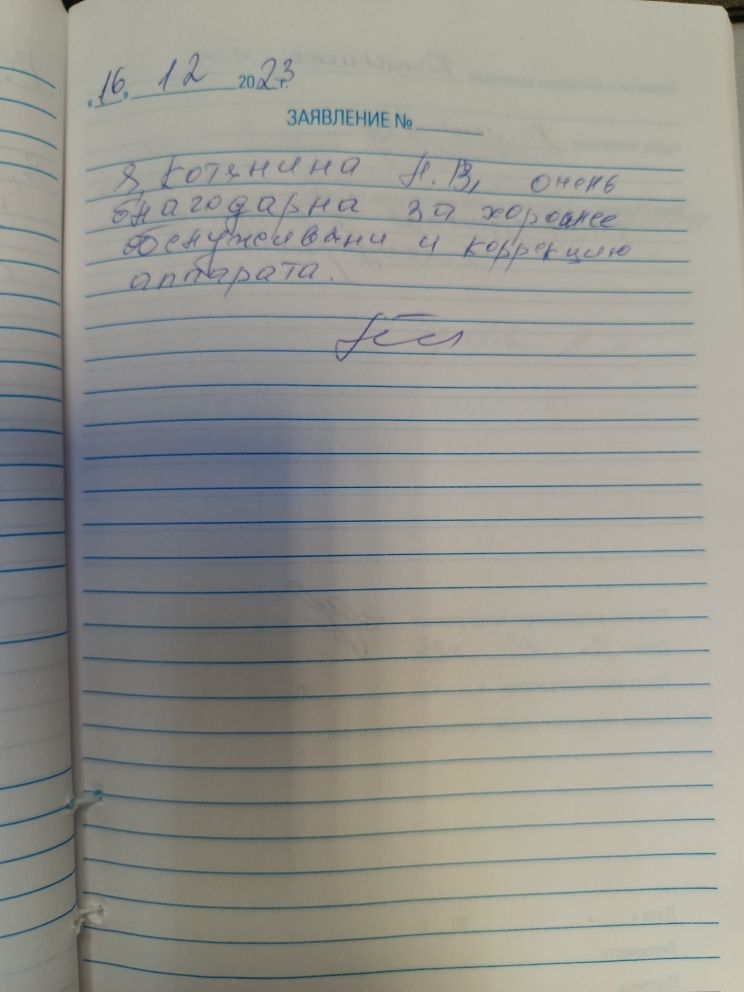 «16» 12 2023 г.
ЗАЯВЛЕНИЕ №
Я, Котянина Н. В, очень
благодарна за хорошее
обслуживани и коррекцию
аппарата.